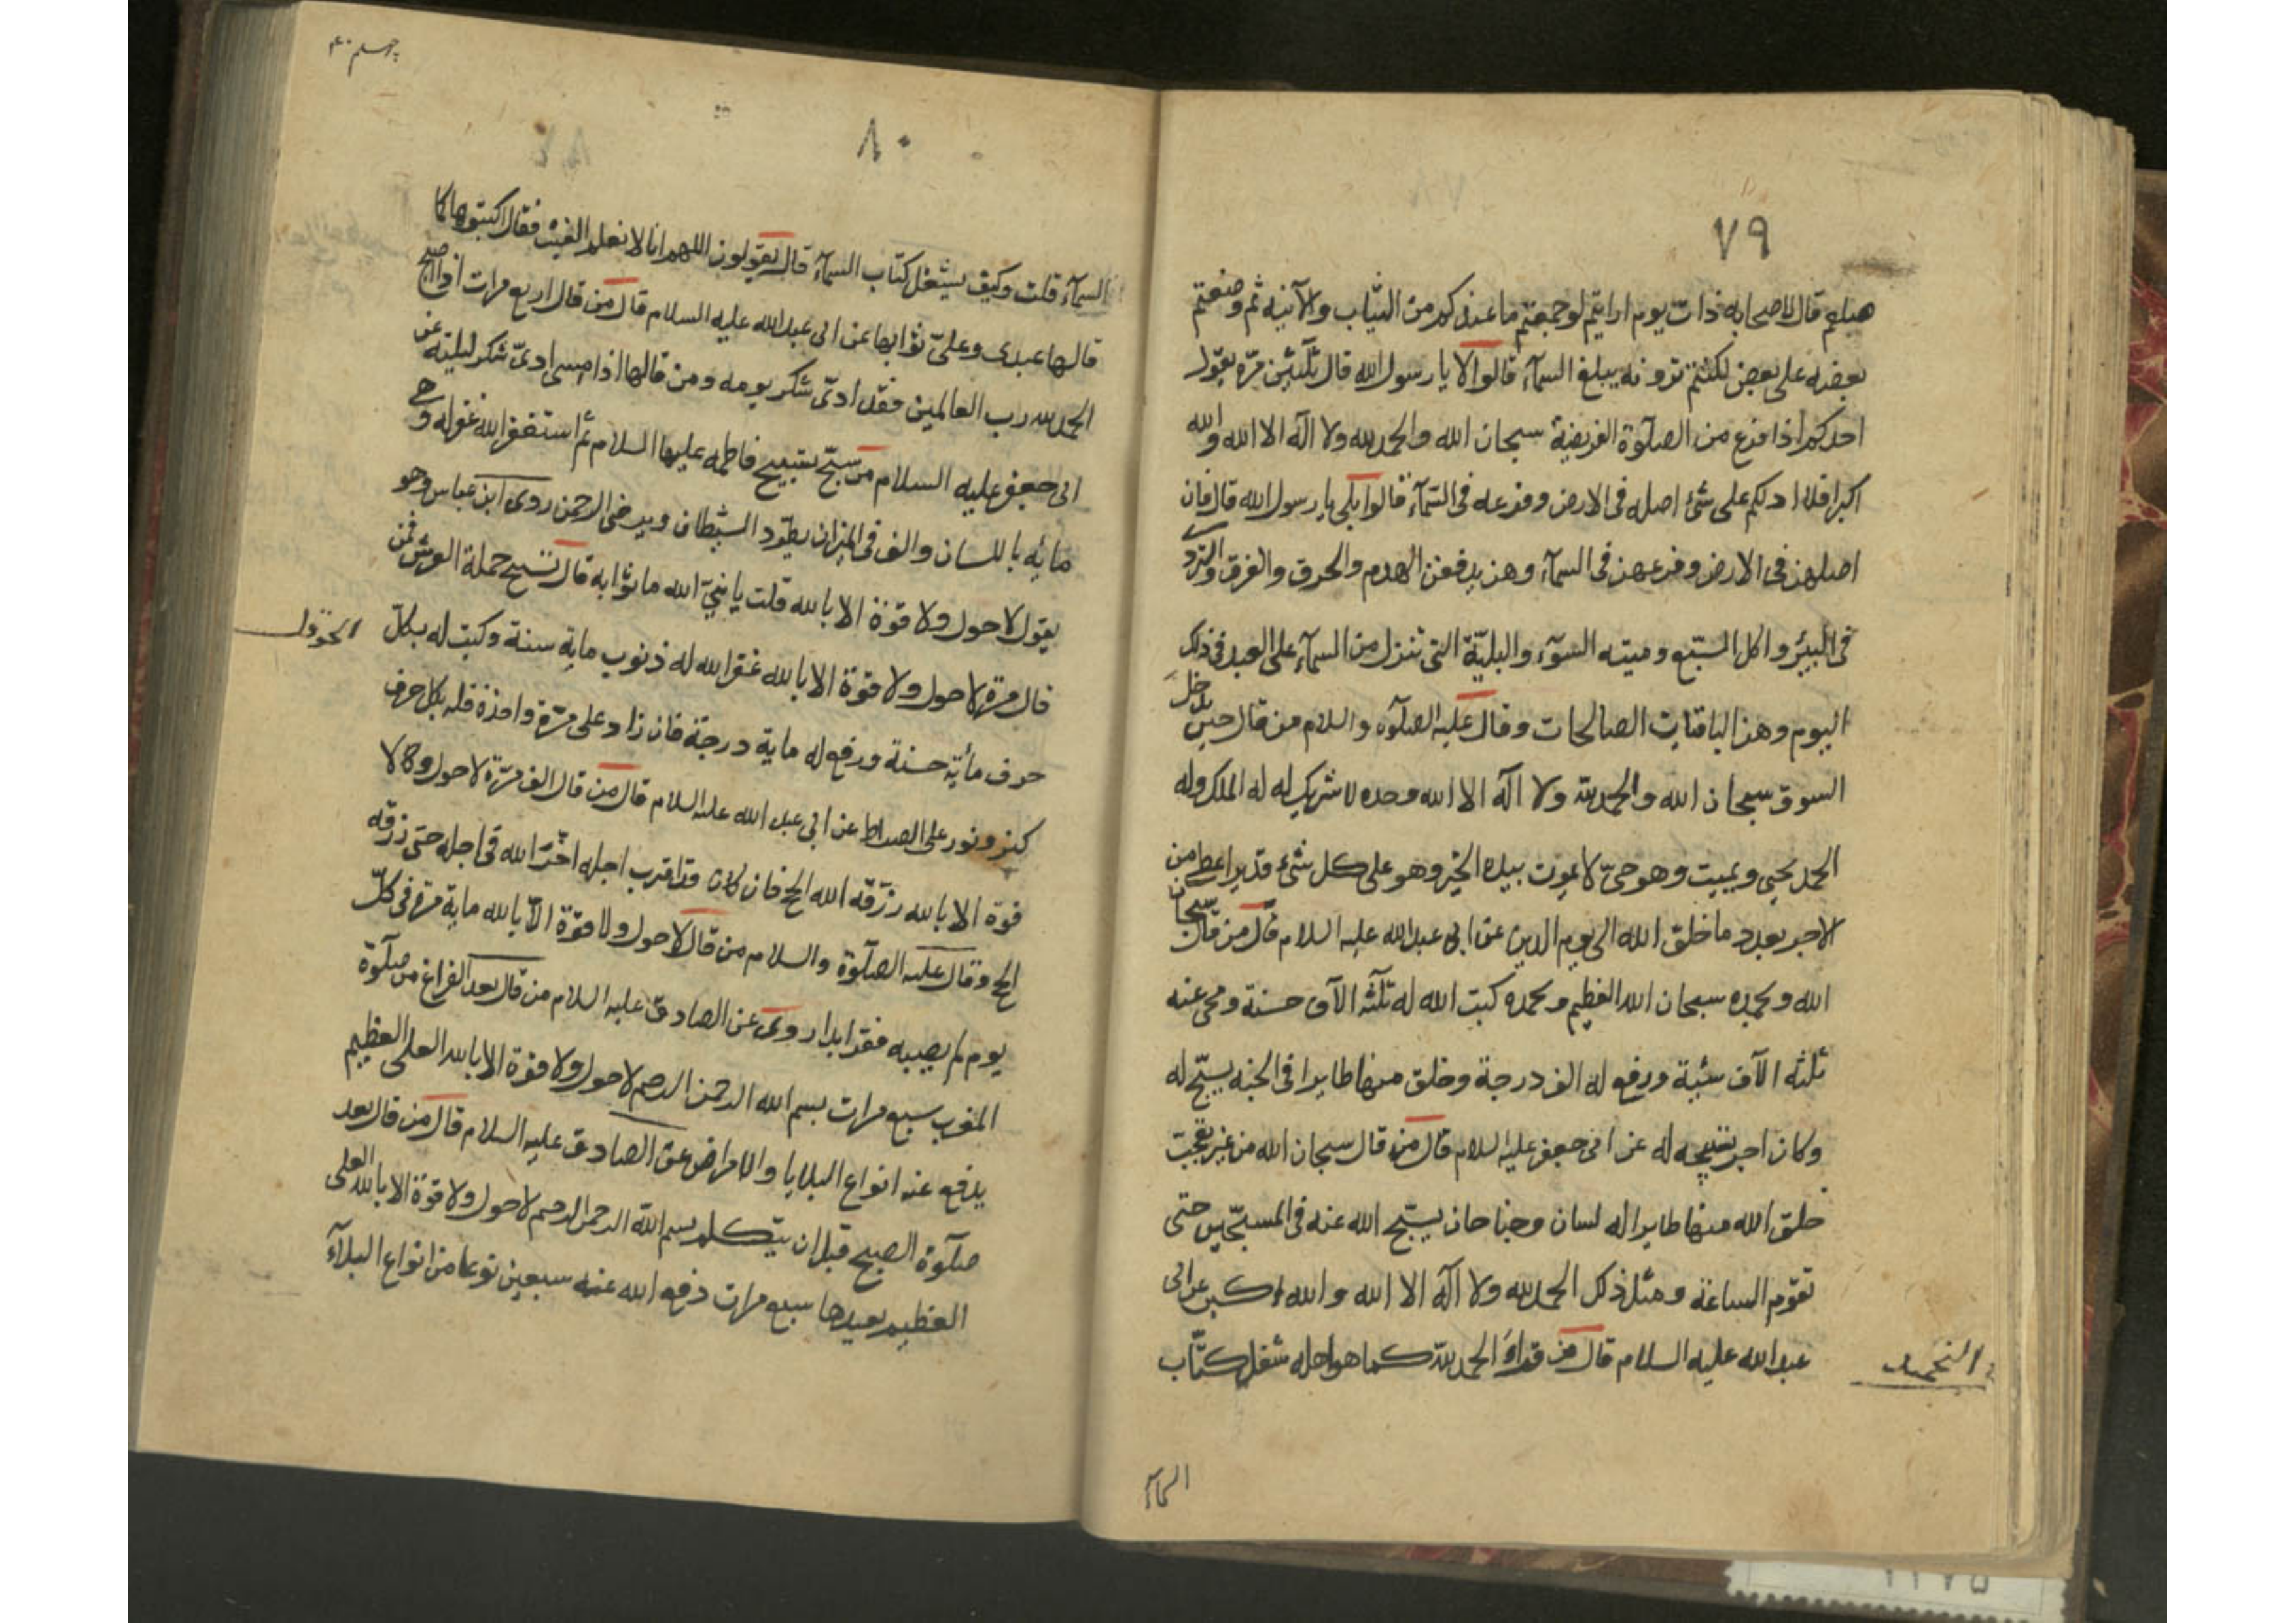 ٧٩
هبلهم قال لاصحابه ذات يوم ارايتم لو جمعتم ما عندكم من الثياب والآنيه ثم وضعتم
بعضه على بعض لكنتم ترونه يبلغ السمآء قالوا لا يا رسول الله قال ثلثين مرّه يقول
احدكم اذا فرغ من الصلوة الفريضة سبحان الله والحمد لله ولا اله الا الله والله
اكبر افلا ادلكم على شئ اصله في الارض وفرعه في السمآء قالوا بلى يا رسول الله قال فان
اصلهن في الارض وفرعهن في السمآء وهن يدفعن الهدم والحرق والغرق والتردى
في البئر واكل السّبع وميته السّوء والبليّة التي تنزل من السمآء على العبد في ذلك
اليوم وهن الباقيات الصالحات وقال عليه الصلوه والسلام من قال حين يدخل
السوق سبحان الله والحمد لله ولا اله الا الله وحده لا شريك له له الملك وله
الحمد يحيى ويميت وهو حىّ لا يموت بيده الخير وهو على كل شئ قدير اعطى من
الاجر بعدد ما خلق الله الى يوم الدين عن ابى عبد الله عليه السلام قال من قال سبحان
الله وبحمده سبحان الله العظيم وبحمده كتب الله له ثلثه الآف حسنة ومحى عنه
ثلثه الآف سيّة ورفع له الف درجة وخلق منها طايرا في الجنه يسبّح له
وكان اجر تسبيحه له عن ابى جعفر عليه السلام قال من قال سبحان الله من غير تعجب
خلق الله منها طايرا له لسان وجناحان يسبّح الله عنه في المسبّحين حتى
تقوم الساعة ومثل ذلك الحمد لله ولا اله الا الله والله اكبر عن ابى
عبد الله عليه السلام قال من قراء الحمد لله كما هو اهله شغل كتّاب
التحميد
السمآء
چهلم ۴۰
٨٠
السمآء قلت وكيف يشغل كتّاب السمآء قال يقولون اللهم انا لا نعلم الغيب فقال اكتبوها كما
قالها عبدى وعلىّ ثوابها عن ابى عبد الله عليه السلام قال من قال اربع مرات اذا اصبح
الحمد لله رب العالمين فقد ادىّ شكر يومه ومن قالها اذا امسى ادىّ شكر ليلته عن
ابى جعفر عليه السلام من سبّح تسبيح فاطمه عليها السلام ثم استغفر الله غفر له وهى
مايه باللسان والف في الميزان يطرد الشيطان ويرضى الرحمن روى ابن عباس وهو
يقول لا حول ولا قوة الا بالله قلت يا نبىّ الله ما ثوابه قال تسبيح حملة العرش فمن
قال مرة لا حول ولا قوة الا بالله غفر الله له ذنوب ماية سنة وكتب له بكلّ
الحوقل
حرف مأية حسنة ورفع له ماية درجة فان زاد على مرّة واحدة فله بكل حرف
كنز ونور على الصراط عن ابى عبد الله عليه السلام قال من قال الف مرّة لا حول ولا
قوة الا بالله رزقه الله الحج فان كان قد اقترب اجله اخّر الله في اجله حتى رزقه
الحج وقال عليه الصلوة والسلام من قال لا حول ولا قوة الا بالله ماية مرة في كلّ
يوم لم يصيبه فقر ابدا روى عن الصادق عليه السلام من قال بعد الفراغ من صلوة
المغرب سبع مرات بسم الله الرحمن الرحيم لا حول ولا قوة الا بالله العلى العظيم
يدفع عنه انواع البلايا والامراض عن الصادق عليه السلام قال من قال بعد
صلوة الصبح قبل ان يتكلم بسم الله الرحمن الرحيم لا حول ولا قوة الا بالله العلى
العظيم يعيدها سبع مرات دفع الله عنه سبعين نوعا من انواع البلآء